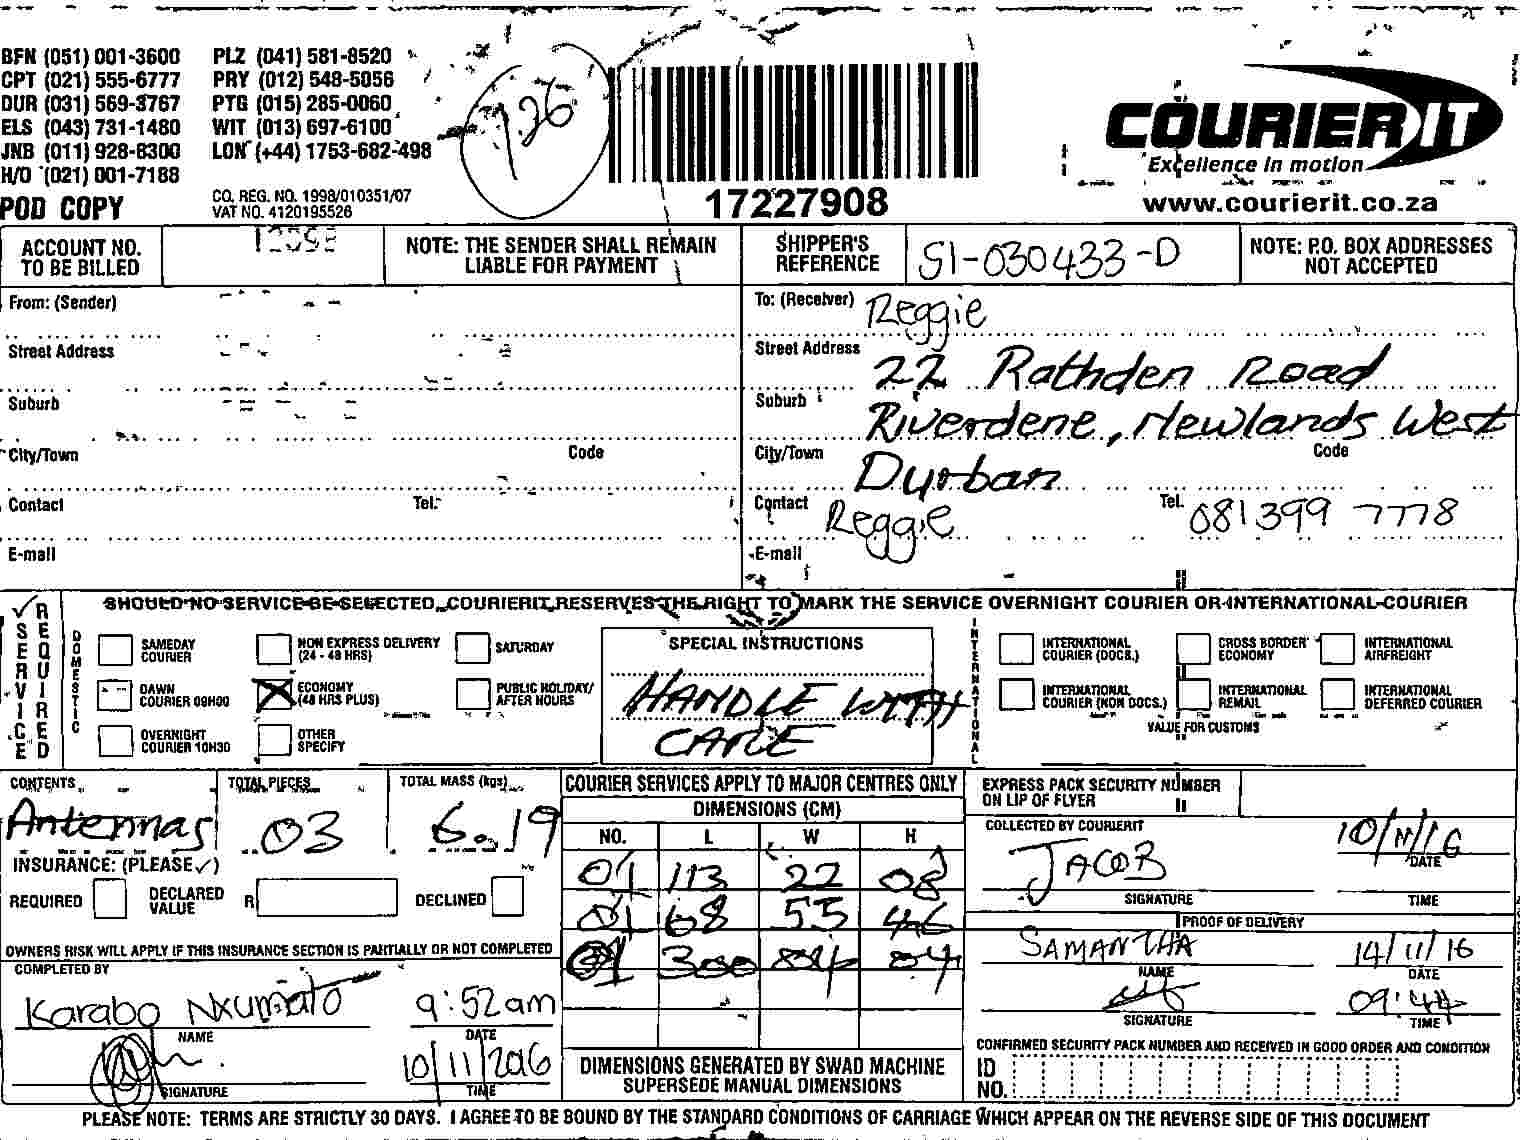 BFN (051) 001-3600 PLZ (041) 581-8520
CPT (021) 555-6777 PRY (012) 548-5056
DUR (031) 569-3767 PTG (015) 285-0060
ELS (043) 731-1480 WIT (013) 697-6100
JNB (011) 928-8300 LON (+44) 1753-682-498
H/O (021) 001-7188
CO. REG. NO. 1998/010351/07
VAT NO. 4120195526
POD COPY
17227908
COURIER IT
Excellence in motion
www.courierit.co.za
ACCOUNT NO. TO BE BILLED
NOTE: THE SENDER SHALL REMAIN LIABLE FOR PAYMENT
SHIPPER'S REFERENCE SI-030433-D
NOTE: P.O. BOX ADDRESSES NOT ACCEPTED
From: (Sender)
Street Address
Suburb
City/Town Code
Contact Tel:
E-mail
To: (Receiver) Reggie
Street Address 22 Rathden Road
Suburb Riverdene, Newlands West
City/Town Durban Code
Contact Reggie Tel. 081 399 7778
E-mail
SHOULD NO SERVICE BE SELECTED, COURIERIT RESERVES THE RIGHT TO MARK THE SERVICE OVERNIGHT COURIER OR INTERNATIONAL COURIER
SERVICE REQUIRED
DOMESTIC
SAMEDAY COURIER
NON EXPRESS DELIVERY (24 - 48 HRS)
SATURDAY
DAWN COURIER 09H00
ECONOMY (48 HRS PLUS)
PUBLIC HOLIDAY/ AFTER HOURS
OVERNIGHT COURIER 10H30
OTHER SPECIFY
SPECIAL INSTRUCTIONS
HANDLE WITH
CARE
INTERNATIONAL
INTERNATIONAL COURIER (DOCS.)
CROSS BORDER ECONOMY
INTERNATIONAL AIRFREIGHT
INTERNATIONAL COURIER (NON DOCS.)
INTERNATIONAL REMAIL
INTERNATIONAL DEFERRED COURIER
VALUE FOR CUSTOMS
CONTENTS Antennas
TOTAL PIECES 03
TOTAL MASS (kgs) 6.19
INSURANCE: (PLEASE ✓)
REQUIRED
DECLARED VALUE R
DECLINED
OWNERS RISK WILL APPLY IF THIS INSURANCE SECTION IS PARTIALLY OR NOT COMPLETED
COMPLETED BY
Karabo Nxumalo 9:52am
NAME DATE
10/11/2016
SIGNATURE TIME
COURIER SERVICES APPLY TO MAJOR CENTRES ONLY
DIMENSIONS (CM)
NO. L W H
01 113 22 08
01 68 55 46
01 300 04
DIMENSIONS GENERATED BY SWAD MACHINE SUPERSEDE MANUAL DIMENSIONS
EXPRESS PACK SECURITY NUMBER ON LIP OF FLYER
COLLECTED BY COURIERIT
JACOB 10/11/16
DATE
SIGNATURE TIME
PROOF OF DELIVERY
SAMANTHA 14/11/16
NAME DATE
09:44
SIGNATURE TIME
CONFIRMED SECURITY PACK NUMBER AND RECEIVED IN GOOD ORDER AND CONDITION
ID NO.
PLEASE NOTE: TERMS ARE STRICTLY 30 DAYS. I AGREE TO BE BOUND BY THE STANDARD CONDITIONS OF CARRIAGE WHICH APPEAR ON THE REVERSE SIDE OF THIS DOCUMENT